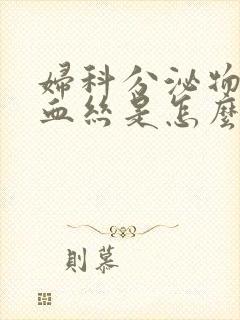 婦科分泌物
血絲是怎麼
則慕